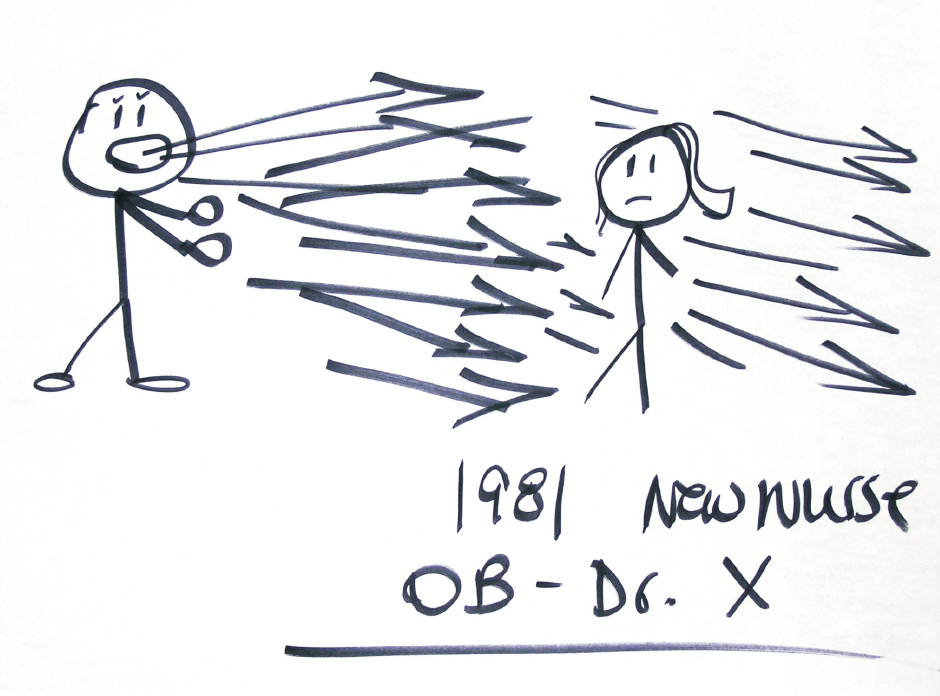 1981 New Nurse
OB - Dr. X